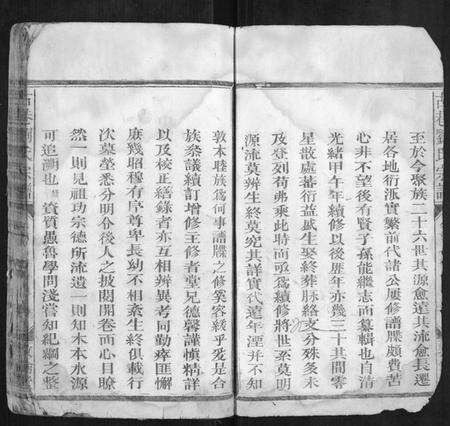 至於今聚族二十六世其源愈遠其流愈長遷
居各地衍派實繁前代諸公屢修譜牒頗費苦
心非不望後有賢子孫能繼志而纂輯也自清
光緒甲午年續修以後歷年亦幾三十其間零
星散處蕃衍益盛生娶終葬脉絡支分殊多未
及登列苟弗乘此時而亟爲續修將世系莫明
源流莫辨生終莫究其詳實代遠年湮并不知
敦本睦族爲何事譜牒之修奚容緩乎爰是合
族衆議續訂增修主修者堂兄德馨謹慎精詳
以及校正繕錄者亦互相辨異考同勤瘁匪懈
庶幾昭穆有序尊卑長幼不相紊生終俱載行
次墓塋悉分明俾後人之披閱開卷而心目瞭
然一則見祖功宗德所流遺一則知木本水源
可追溯也 資質愚魯學問淺嘗知紀綱之整